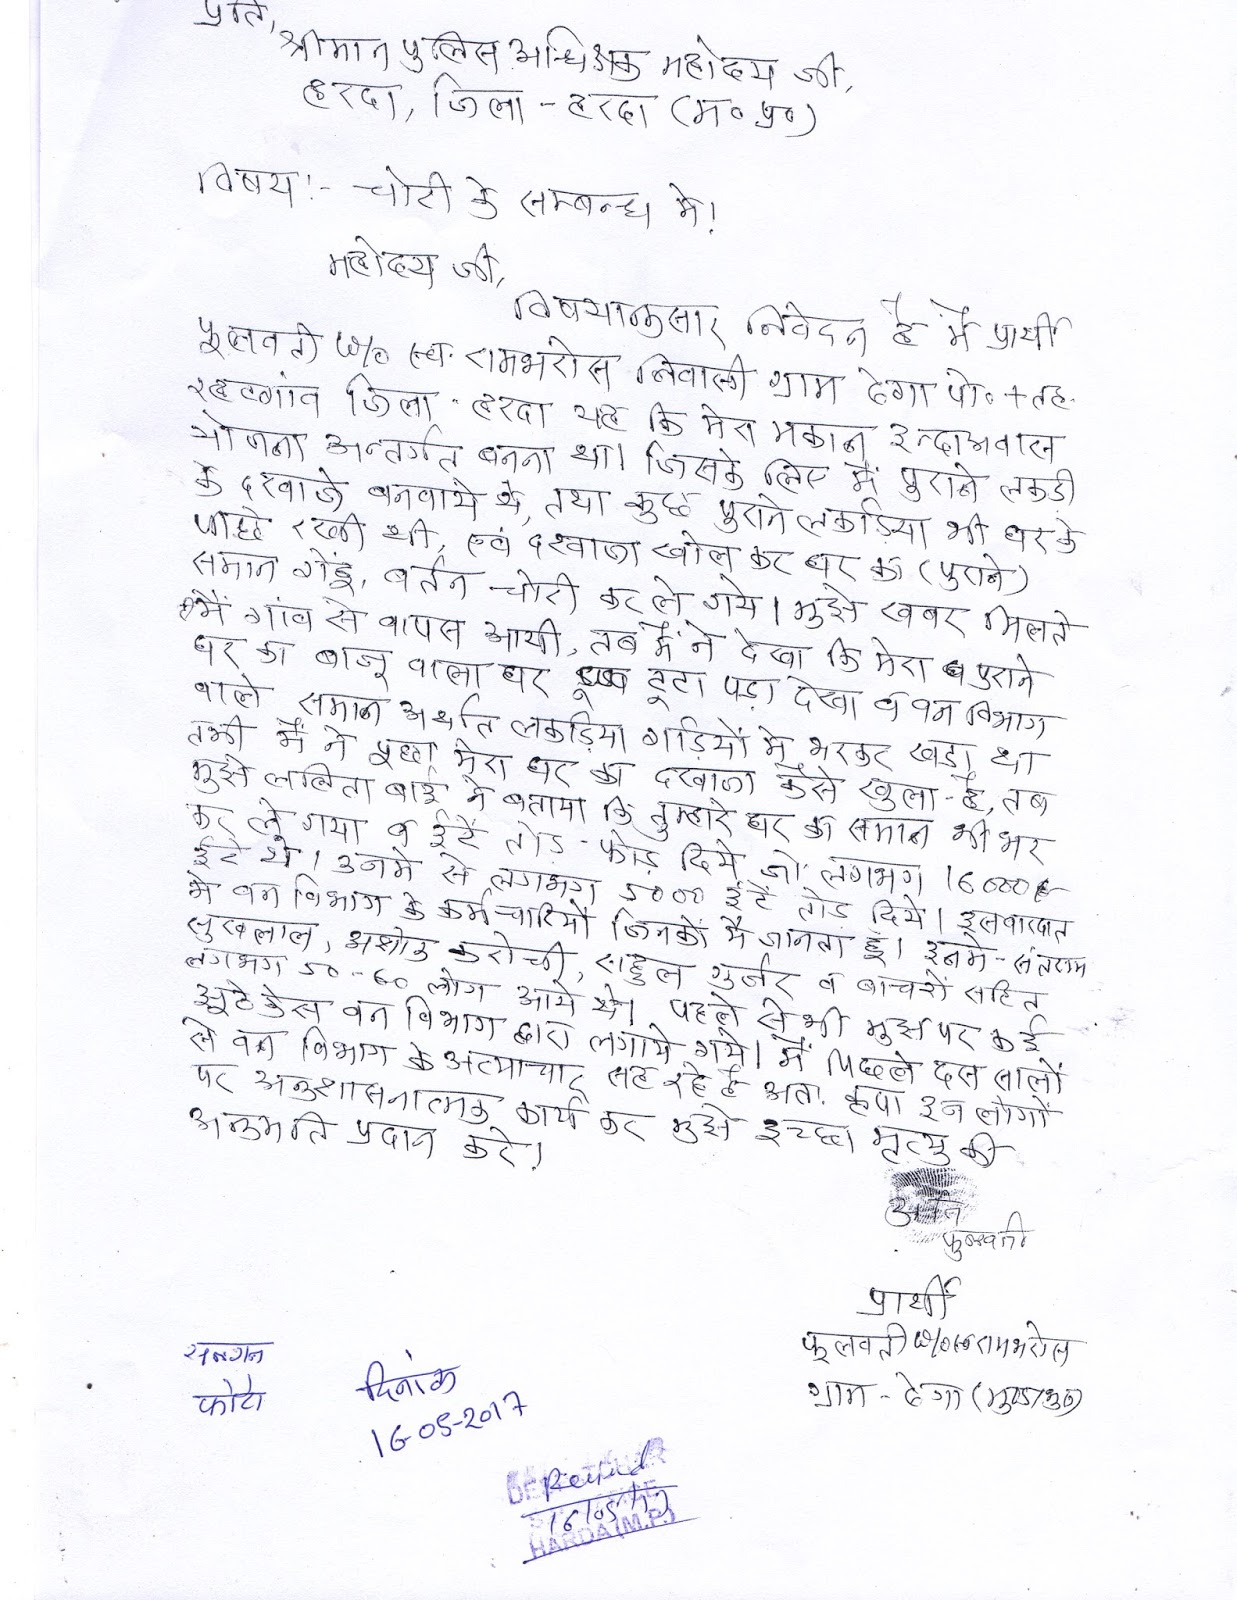 प्रति,
श्रीमान पुलिस अधिक्षक महोदय जी,
हरदा, जिला - हरदा (म० प्र०)
विषय:- चोरी के सम्बन्ध मे!
महोदय जी,
विषयानुसार निवेदन है मैं प्रार्थी
फूलवती w/o स्व. रामभरोस निवासी ग्राम ढेगा पो. + तह.
रहटगांव जिला - हरदा यह कि मेरा मकान इन्दाअवास
योजना अन्तर्गत बनना था। जिसके लिए मैं पुराने लकड़ी
के दरवाजे बनवाये थे, तथा कुछ पुराने लकड़िया भी घर के
पीछे रखी थी, एवं दरवाजा खोल कर घर का (पुराने)
समान गेंहू, बर्तन चोरी कर ले गये। मुझे खबर मिलते
मैं गांव से वापस आयी, तब मैं ने देखा कि मेरा पुराने
घर का बाजू वाला घर टूटा पड़ा देखा व वन विभाग
वाले समान अर्थात लकड़िया गाड़ियों मे भरकर खड़ा था
तभी मैं ने पूछा मेरा घर का दरवाजा कैसे खुला है, तब
मुझे ललिता बाई ने बताया कि तुम्हारे घर का समान भी भर
कर ले गया व ईटें तोड़ - फोड़ दिये जो लगभग 16000
ईटे थे। उनमे से लगभग 5000 ईटें तोड़ दिये। इस वारदात
मे वन विभाग के कर्मचारियों जिनको मै जानता हूं। इनमे - संतराम
सुखलाल, अशोक करोची, राहुल गुर्जर व बाचरों सहित
लगभग 50 - 60 लोग आये थे। पहले से भी मुझ पर कई
झूठे केस वन विभाग द्वारा लगाये गये। मैं पिछले दस सालों
से वन विभाग के अत्याचार सह रहे है अतः कृपा इन लोगों
पर अनुशासनात्मक कार्य कर मुझे इच्छा मृत्यु की
अनुमति प्रदान करे!
फुलवती
प्रार्थी
फूलवती w/o स्व रामभरोस
ग्राम - ढेगा
सलग्न
फोटो
दिनांक
16-05-2017
Received
16/05/17
HARDA (M.P.)